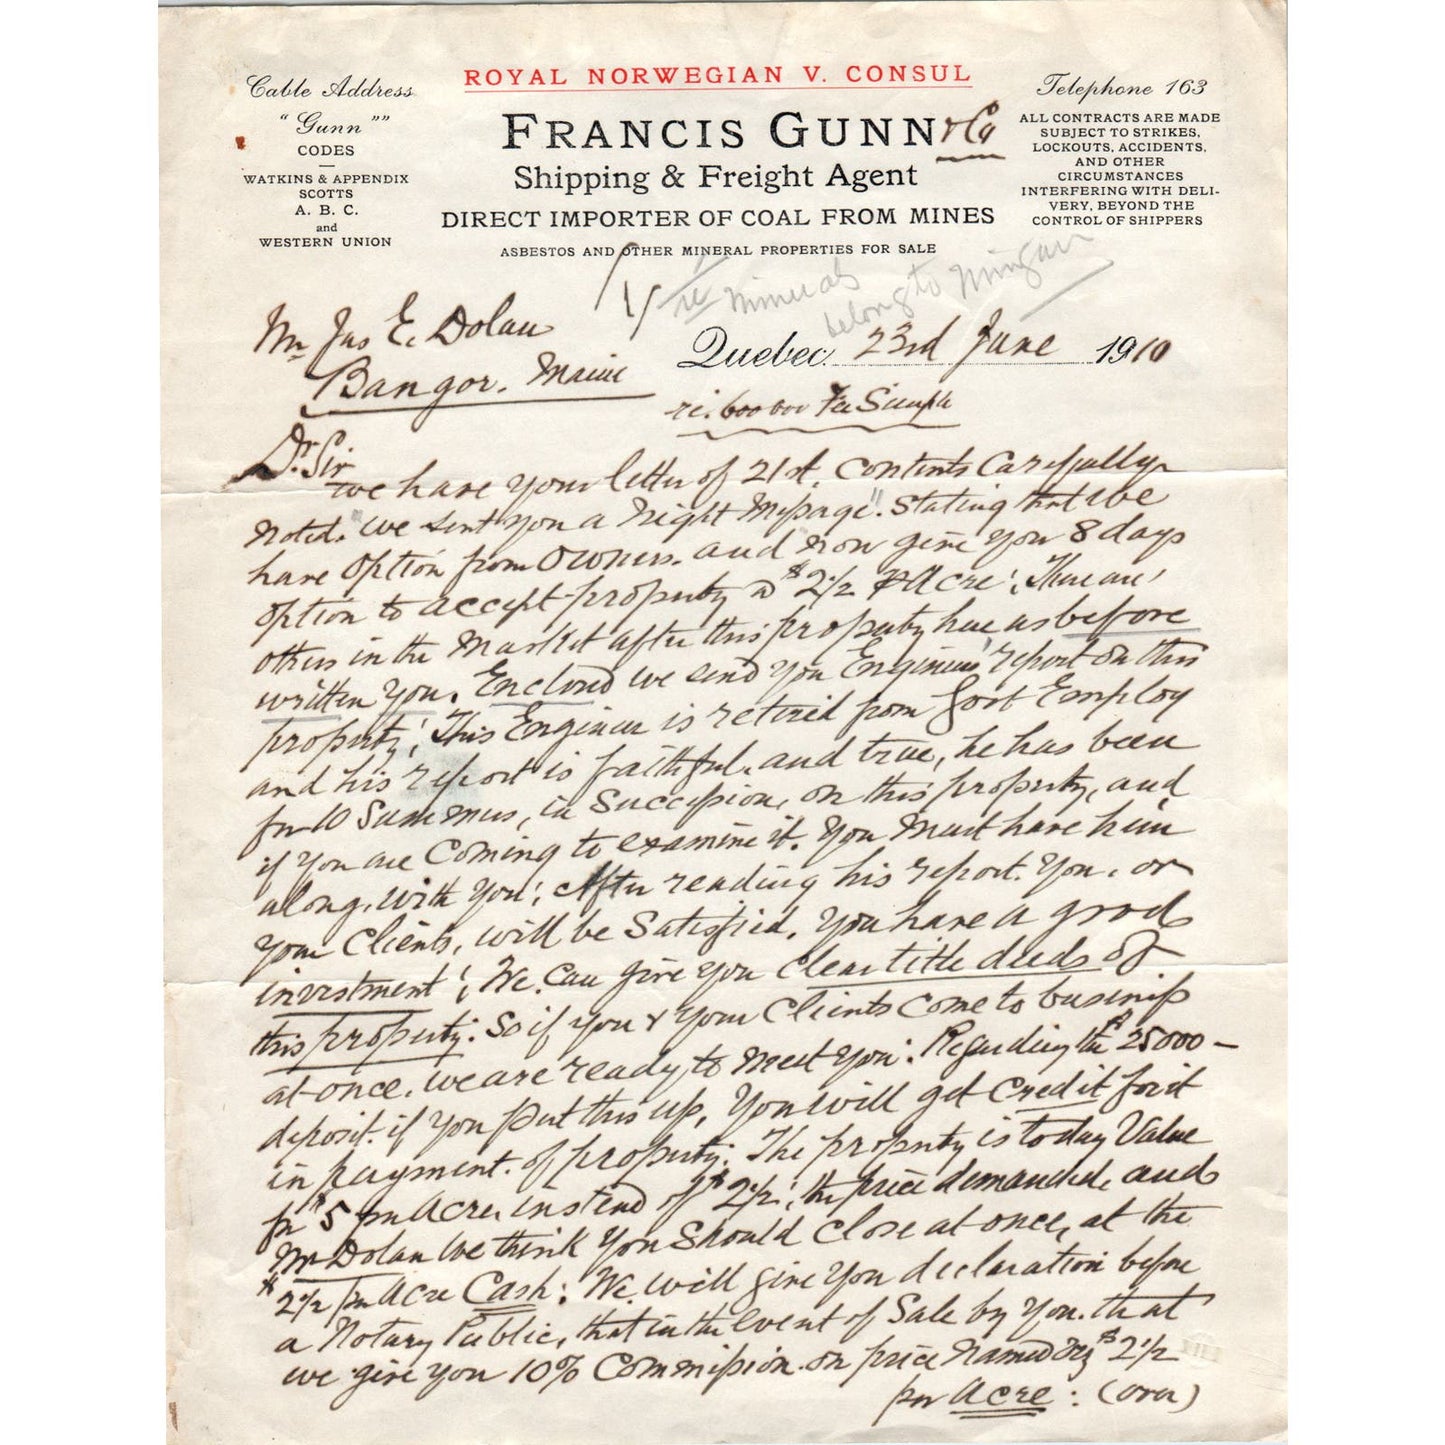 ROYAL NORWEGIAN V. CONSUL
Cable Address
"Gunn""
CODES
WATKINS & APPENDIX
SCOTTS
A. B. C.
and
WESTERN UNION
FRANCIS GUNN & Co
Shipping & Freight Agent
DIRECT IMPORTER OF COAL FROM MINES
ASBESTOS AND OTHER MINERAL PROPERTIES FOR SALE
Telephone 163
ALL CONTRACTS ARE MADE
SUBJECT TO STRIKES,
LOCKOUTS, ACCIDENTS,
AND OTHER
CIRCUMSTANCES
INTERFERING WITH DELI-
VERY, BEYOND THE
CONTROL OF SHIPPERS
re minerals
belong to Mingan
Mr Jas E. Dolan
Bangor. Maine
Quebec. 23rd June 1910
re. 600 000 Fee Simple
Dr. Sir
we have your letter of 21st. Contents Carefully
Noted. "We sent you a Night Message". Stating that we
have Option from Owners. and now give you 8 days
option to accept property @ $2 1/2 P Acre; There are
others in the Market after this property here as before
written you. Enclosed we send you Engineers report on this
property; This Engineer is retired from Govt Employ
and his report is faithful. and true, he has been
for 10 Summers, in Succession, on this property, and
if you are Coming to examine it. You Must have him
along, with you; After reading his report. You, or
your Clients, will be Satisfied, You have a good
investment; We Can give you clear title deeds of
this property. So if you & your Clients Come to business
at once. we are ready to meet you. Regarding the $25000 -
deposit. if you put this up, You will get Credit for it
in payment. of property. The property is today Value
for $5 per Acre, instead of $2 1/2; the price demanded, and
Mr Dolan We think you Should Close at once, at the
$2 1/2 per Acre Cash; We will give You declaration before
a Notary Public, that in the event of Sale by You. that
we give you 10% Commission. on price Named $2 1/2
per Acre: (over)